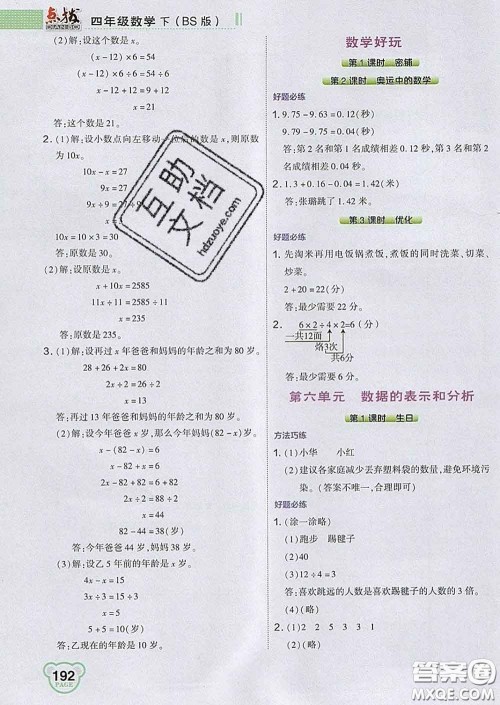 点拨 四年级数学 下(BS版)
(2)解:设这个数是x。
(x-12)×6=54
(x-12)×6÷6=54÷6
x-12+12=9+12
x=21
答:这个数是21。
2.(1)解:设小数点向左移动一位后的数是x,则原数
为10x。
10x-x=27
9x=27
9x÷9=27÷9
x=3
10x=10×3=30
答:原数是30。
(2)解:设原数是x。
x+10x=2585
11x=2585
11x÷11=2585÷11
x=235
答:原数是235。
3.(1)解:设再过x年爸爸和妈妈的年龄之和为80岁。
28+26+2x=80
2x=26
x=13
答:再过13年爸爸和妈妈的年龄之和为80岁。
(2)解:设今年爸爸x岁。
x-6+x=82-4
2x-6=78
x=42
42+2=44(岁)
82-44=38(岁)
答:今年爸爸44岁,妈妈38岁。
(3)解:设乙5年前的年龄是x。
4x-x=15
3x÷3=15÷3
x=5
5+5=10(岁)
答:乙现在的年龄是10岁。
192
PAGE
数学好玩
第1课时 密铺
第2课时 奥运中的数学
好题必练
1. 9.75-9.63=0.12(秒)
9.79-9.75=0.04(秒)
答:第2名和第1名成绩相差0.12秒,第3名和第2
名成绩相差0.04秒。
2. 1.3+0.16-0.04=1.42(米)
答:张璐跳了1.42米。
第3课时 优化
好题必练
1. 先淘米再用电饭锅煮饭,煮饭的同时洗菜、切菜、
炒菜。
2+20=22(分)
答:最少需要22分。
2. 6×2÷4×2=6(分)
一共12面
烙3次
共6分
答:最少需要6分。
第六单元 数据的表示和分析
第1课时 生日
方法巧练
1.(1)小华 小红
(2)建议各家庭减少丢弃塑料袋的数量,避免环境污
染。(答案不唯一)
好题必练
1.(涂一涂略)
(1)跑步 踢毽子
(2)40
(3)12
答:喜欢跳远的人数是喜欢踢毽子的人数的3倍。
(4)(略)
2.(1)2 2 5 3 3 1
(2)(略)
互助
文档
hdzuoye.com
答案圈
MXQE.COM